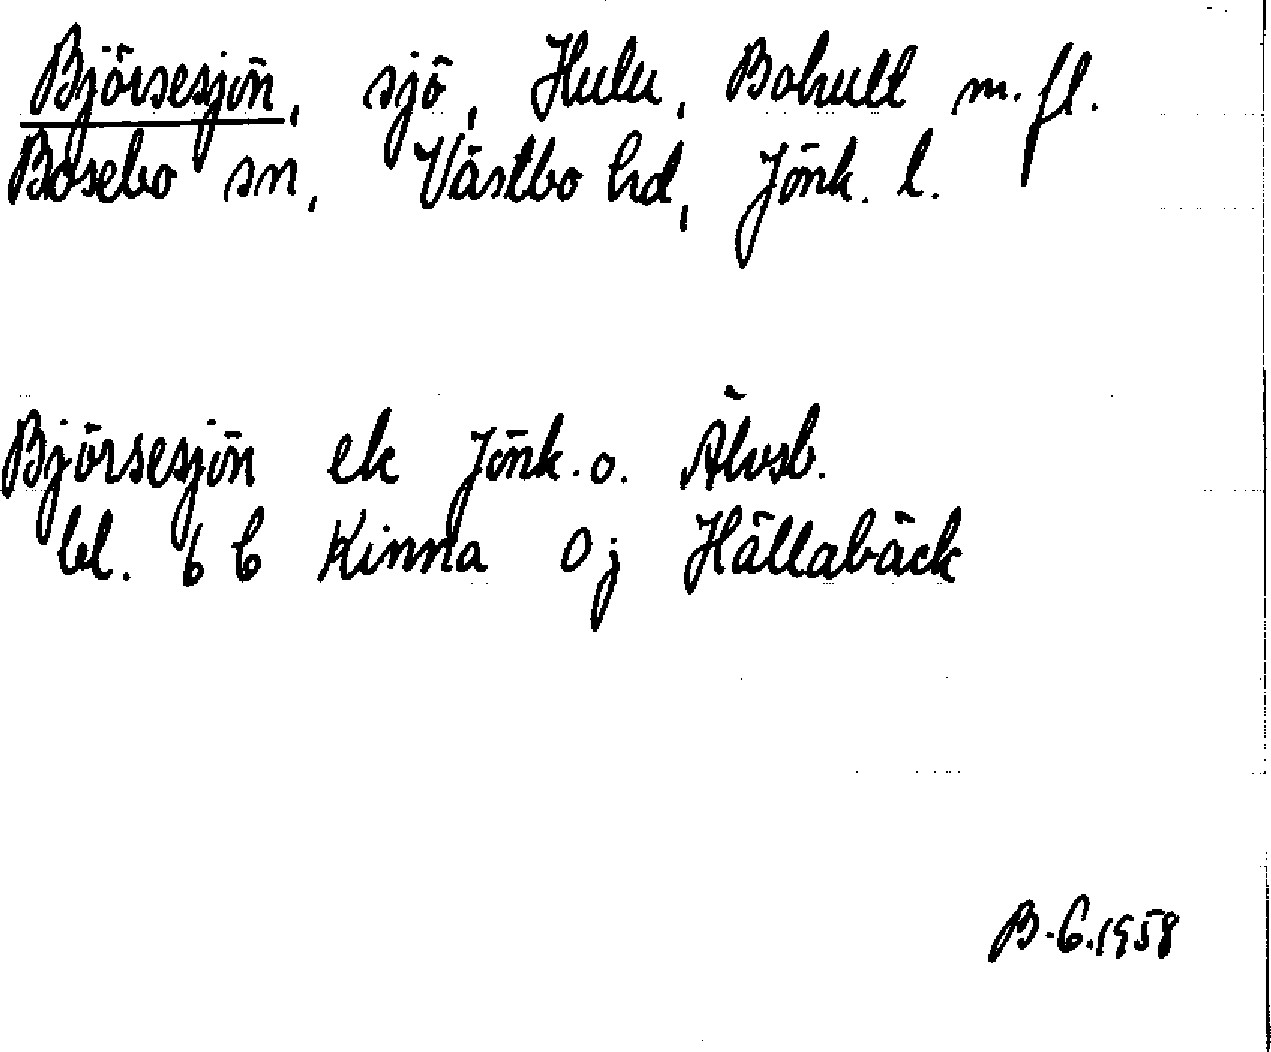 Björsesjön, sjö, Hulu, Bohult m. fl.
Bosebo sn, Västbo hd, Jönk. l.
Björsesjön ek Jönk. o. Älvsb.
bl. 6 C Kinna Oj Hällabäck
B.G.1958